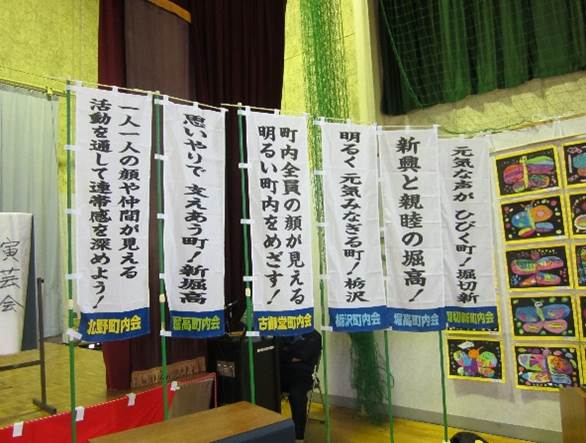 演芸会
一人一人の顔や仲間が見える
活動を通して連帯感を深めよう！
北野町内会
思いやりで 支えあう町！新堀高
堀高町内会
町内全員の顔が見える
明るい町内をめざす！
古御堂町内会
明るく 元気みなぎる町！栃沢
栃沢町内会
新興と親睦の堀高！
堀高町内会
元気な声が ひびく町！堀切新
堀切新町内会